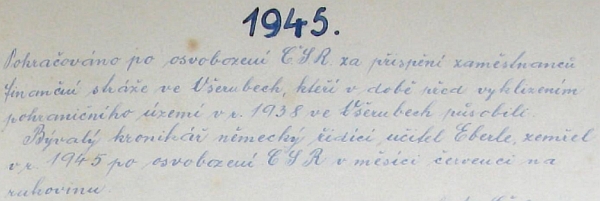 1945.
Pokračováno po osvobození ČSR. za přispění zaměstnanců
finanční stráže ve Všerubech, kteří v době před vyklizením
pohraničního území v r. 1938 ve Všerubech působili.
Bývalý kronikář německý řídící učitel Eberle, zemřel
v r. 1945 po osvobození ČSR v měsíci červenci na
rakovinu.